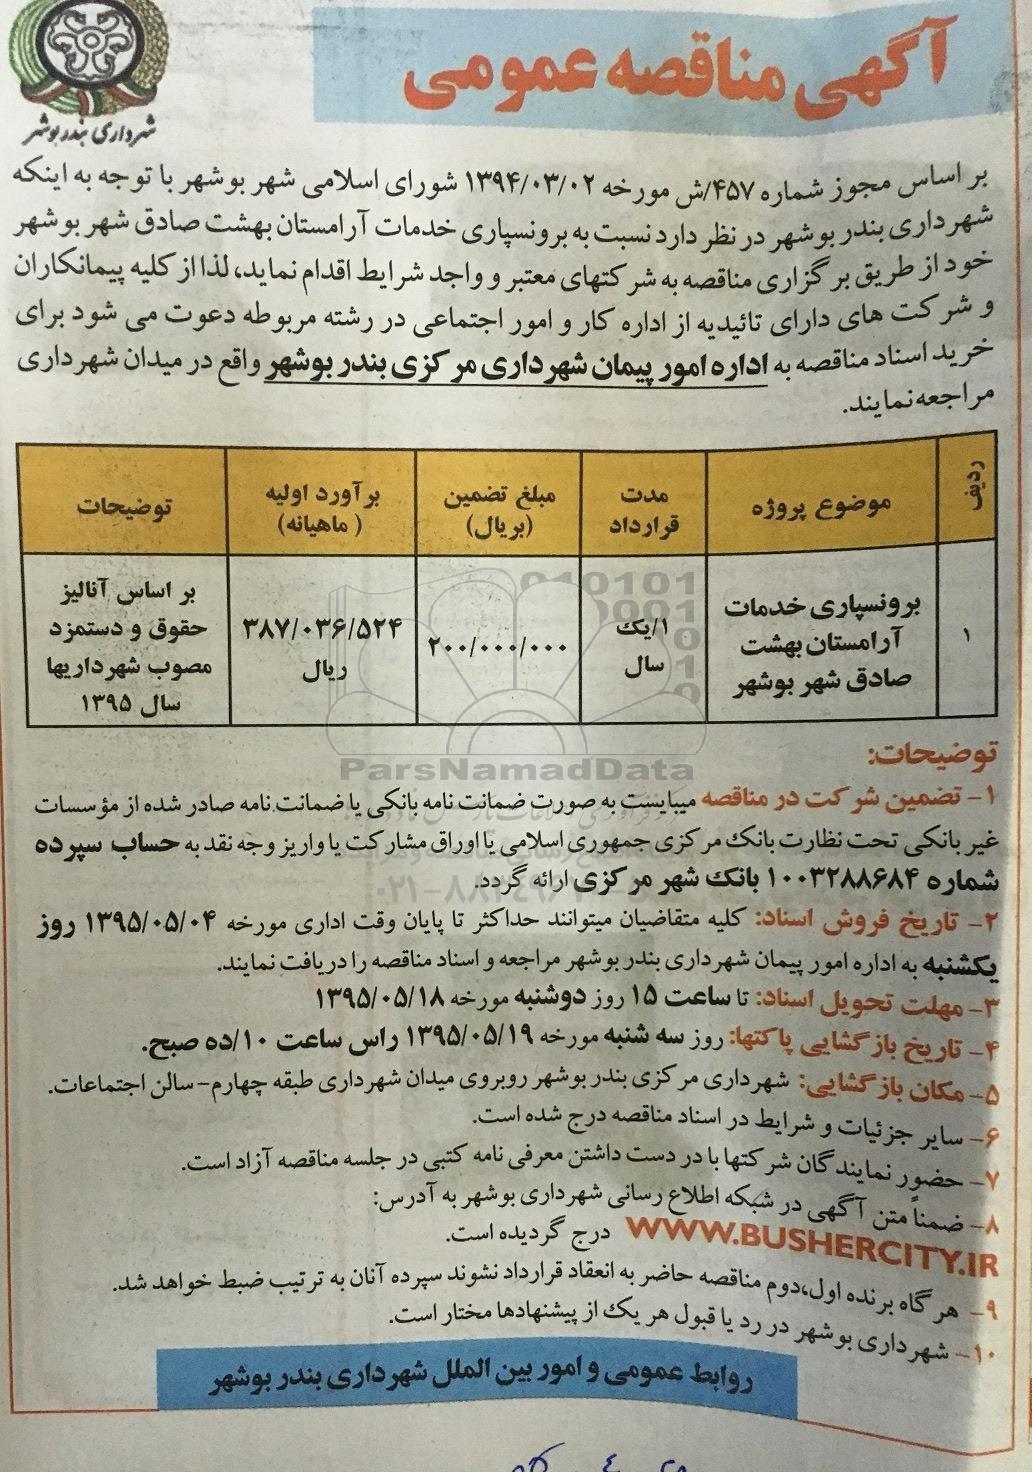 آگهی مناقصه عمومی
شهرداری بندر بوشهر
بر اساس مجوز شماره ۴۵۷/ش مورخه ۱۳۹۴/۰۳/۰۲ شورای اسلامی شهر بوشهر با توجه به اینکه
شهرداری بندر بوشهر در نظر دارد نسبت به برونسپاری خدمات آرامستان بهشت صادق شهر بوشهر
خود از طریق برگزاری مناقصه به شرکتهای معتبر و واجد شرایط اقدام نماید، لذا از کلیه پیمانکاران
و شرکت های دارای تائیدیه از اداره کار و امور اجتماعی در رشته مربوطه دعوت می شود برای
خرید اسناد مناقصه به اداره امور پیمان شهرداری مرکزی بندر بوشهر واقع در میدان شهرداری
مراجعه نمایند.
ردیف
موضوع پروژه
مدت
قرارداد
مبلغ تضمین
(بریال)
برآورد اولیه
(ماهیانه)
توضیحات
۱
برونسپاری خدمات
آرامستان بهشت
صادق شهر بوشهر
۱/یک
سال
۲۰۰/۰۰۰/۰۰۰
۳۸۷/۰۳۶/۵۲۴
ریال
بر اساس آنالیز
حقوق و دستمزد
مصوب شهرداریها
سال ۱۳۹۵
ParsNamadData
توضیحات:
۱- تضمین شرکت در مناقصه میبایست به صورت ضمانت نامه بانکی یا ضمانت نامه صادر شده از مؤسسات
غیر بانکی تحت نظارت بانک مرکزی جمهوری اسلامی یا اوراق مشارکت یا واریز وجه نقد به حساب سپرده
شماره ۱۰۰۳۲۸۸۶۸۴ بانک شهر مرکزی ارائه گردد.
۲- تاریخ فروش اسناد: کلیه متقاضیان میتوانند حداکثر تا پایان وقت اداری مورخه ۱۳۹۵/۰۵/۰۴ روز
یکشنبه به اداره امور پیمان شهرداری بندر بوشهر مراجعه و اسناد مناقصه را دریافت نمایند.
۳- مهلت تحویل اسناد: تا ساعت ۱۵ روز دوشنبه مورخه ۱۳۹۵/۰۵/۱۸
۴- تاریخ بازگشایی پاکتها: روز سه شنبه مورخه ۱۳۹۵/۰۵/۱۹ راس ساعت ۱۰/ده صبح.
۵- مکان بازگشایی: شهرداری مرکزی بندر بوشهر روبروی میدان شهرداری طبقه چهارم-سالن اجتماعات.
۶- سایر جزئیات و شرایط در اسناد مناقصه درج شده است.
۷- حضور نمایندگان شرکتها با در دست داشتن معرفی نامه کتبی در جلسه مناقصه آزاد است.
۸- ضمناً متن آگهی در شبکه اطلاع رسانی شهرداری بوشهر به آدرس:
WWW.BUSHERCITY.IR درج گردیده است.
۹- هر گاه برنده اول،دوم مناقصه حاضر به انعقاد قرارداد نشوند سپرده آنان به ترتیب ضبط خواهد شد.
۱۰- شهرداری بوشهر در رد یا قبول هر یک از پیشنهادها مختار است.
روابط عمومی و امور بین الملل شهرداری بندر بوشهر